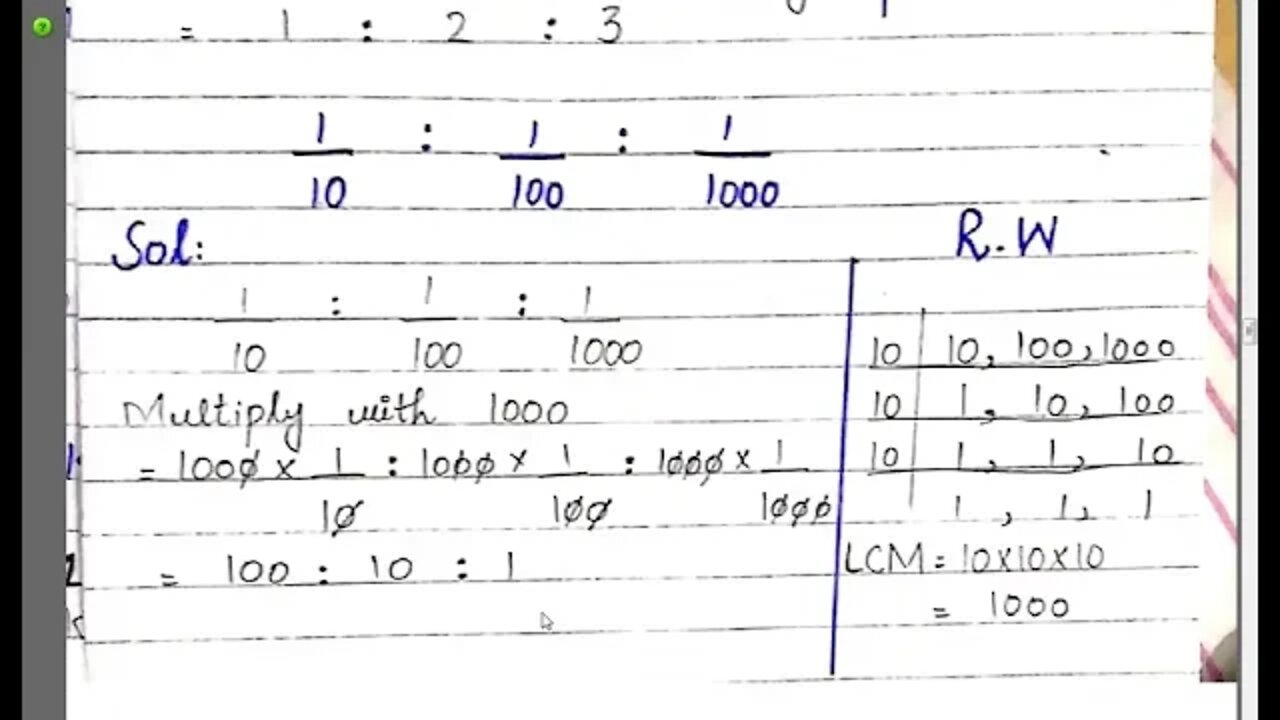 = 1 : 2 : 3
1/10 : 1/100 : 1/1000
Sol:
1/10 : 1/100 : 1/1000
Multiply with 1000
= 1000 × 1/10 : 1000 × 1/100 : 1000 × 1/1000
= 100 : 10 : 1
R.W
10 | 10, 100, 1000
10 | 1, 10, 100
10 | 1, 1, 10
1, 1, 1
LCM = 10×10×10
= 1000